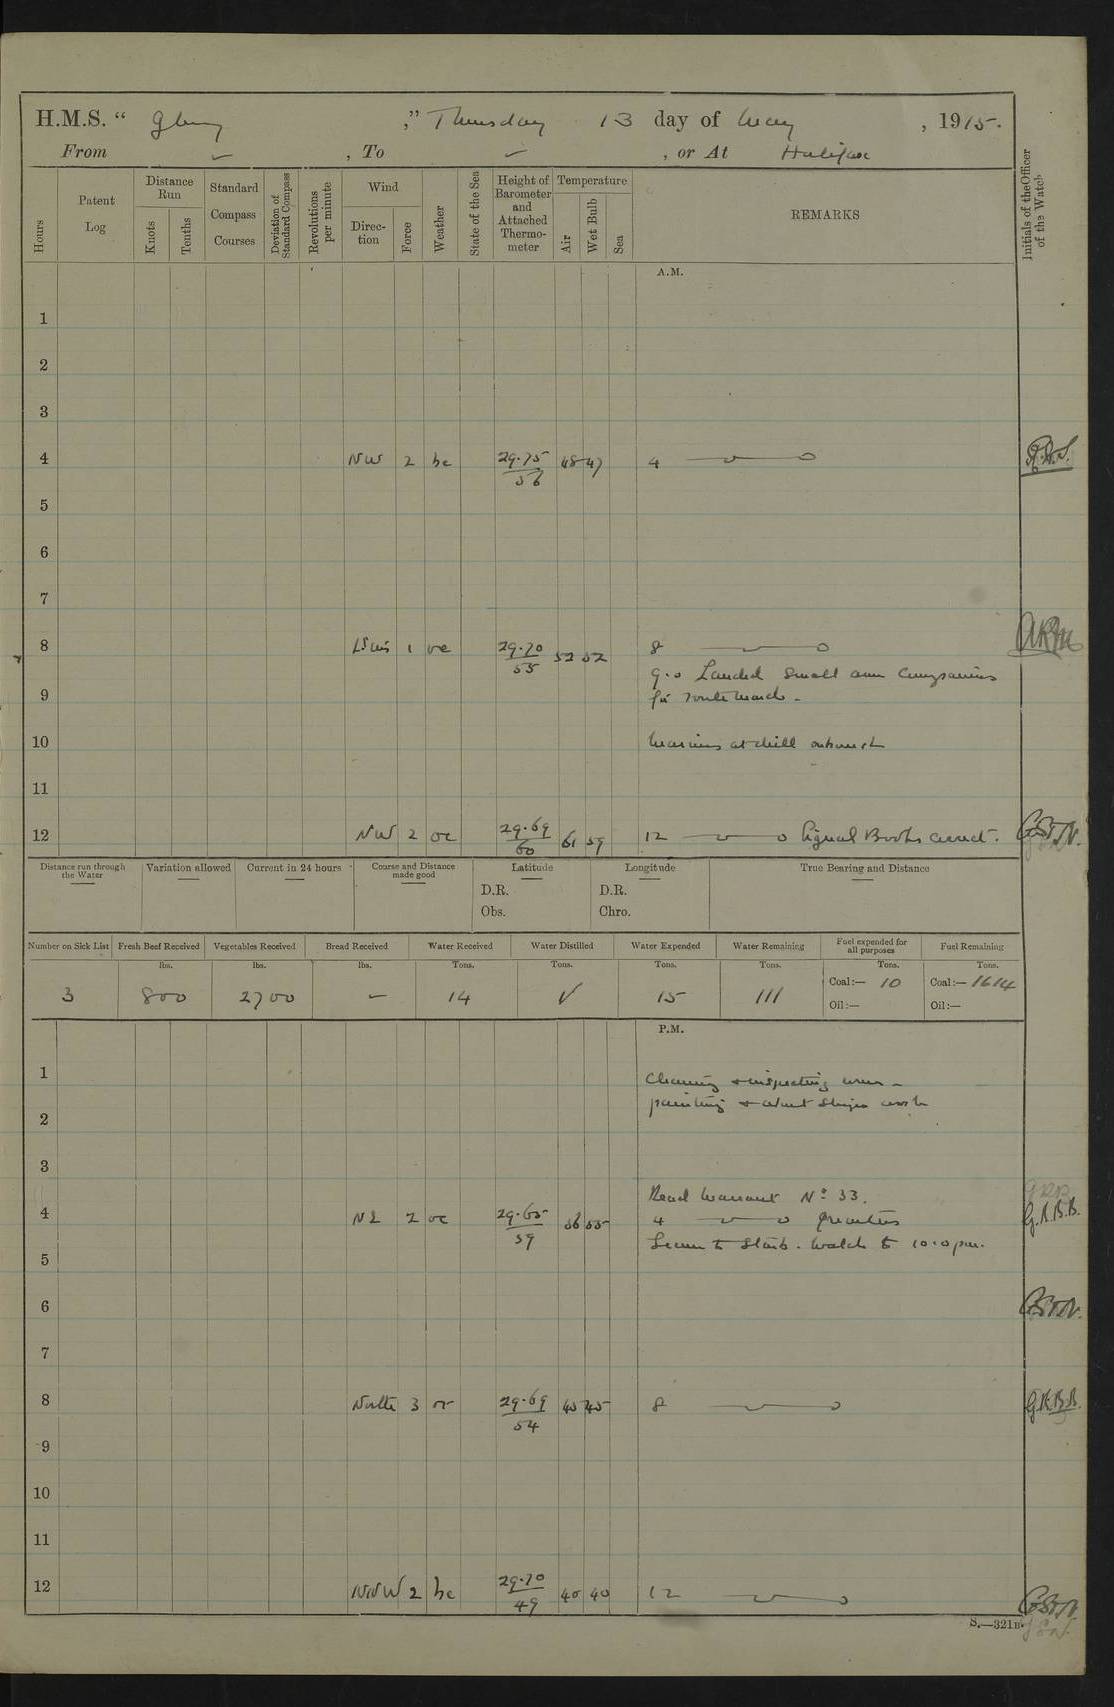 H.M.S. “ Glory ,” Thursday 13 day of May , 1915.
From ✓ , To ✓ , or At Halifax
Hours
Patent Log
Distance Run
Knots
Tenths
Standard Compass Courses
Deviation of Standard Compass
Revolutions per minute
Wind
Direction
Force
Weather
State of the Sea
Height of Barometer and Attached Thermometer
Temperature
Air
Wet Bulb
Sea
REMARKS
Initials of the Officer of the Watch
A.M.
1
2
3
4 NW 2 bc 29.75 56 48 47 4
5
6
7
8 1 oc 29.70 55 52 52 8
9.0 Landed small arm companies
9 for route march -
10 Marines at drill
11
12 NW 2 oc 29.69 60 61 59 12 Signal Books correct.
Distance run through the Water
Variation allowed
Current in 24 hours
Course and Distance made good
Latitude
D.R.
Obs.
Longitude
D.R.
Chro.
True Bearing and Distance
Number on Sick List Fresh Beef Received Vegetables Received Bread Received Water Received Water Distilled Water Expended Water Remaining Fuel expended for all purposes Fuel Remaining
lbs. lbs. lbs. Tons. Tons. Tons. Tons. Tons. Tons.
3 800 2700 - 14 ✓ 15 111 Coal:— 10 Coal:— 1614
Oil:— Oil:—
P.M.
1 Cleaning & inspecting arms -
painting & about ships work
2
3
Read Warrant No. 33.
4 NE 2 oc 29.65 59 56 55 4 Quarters
Leave to Starb. Watch to 10.0 pm.
G.R.B.B.
5
6
7
8 North 3 29.69 54 45 45 8
G.R.B.B.
9
10
11
12 NNW 2 bc 29.70 49 40 40 12
S.—321B.